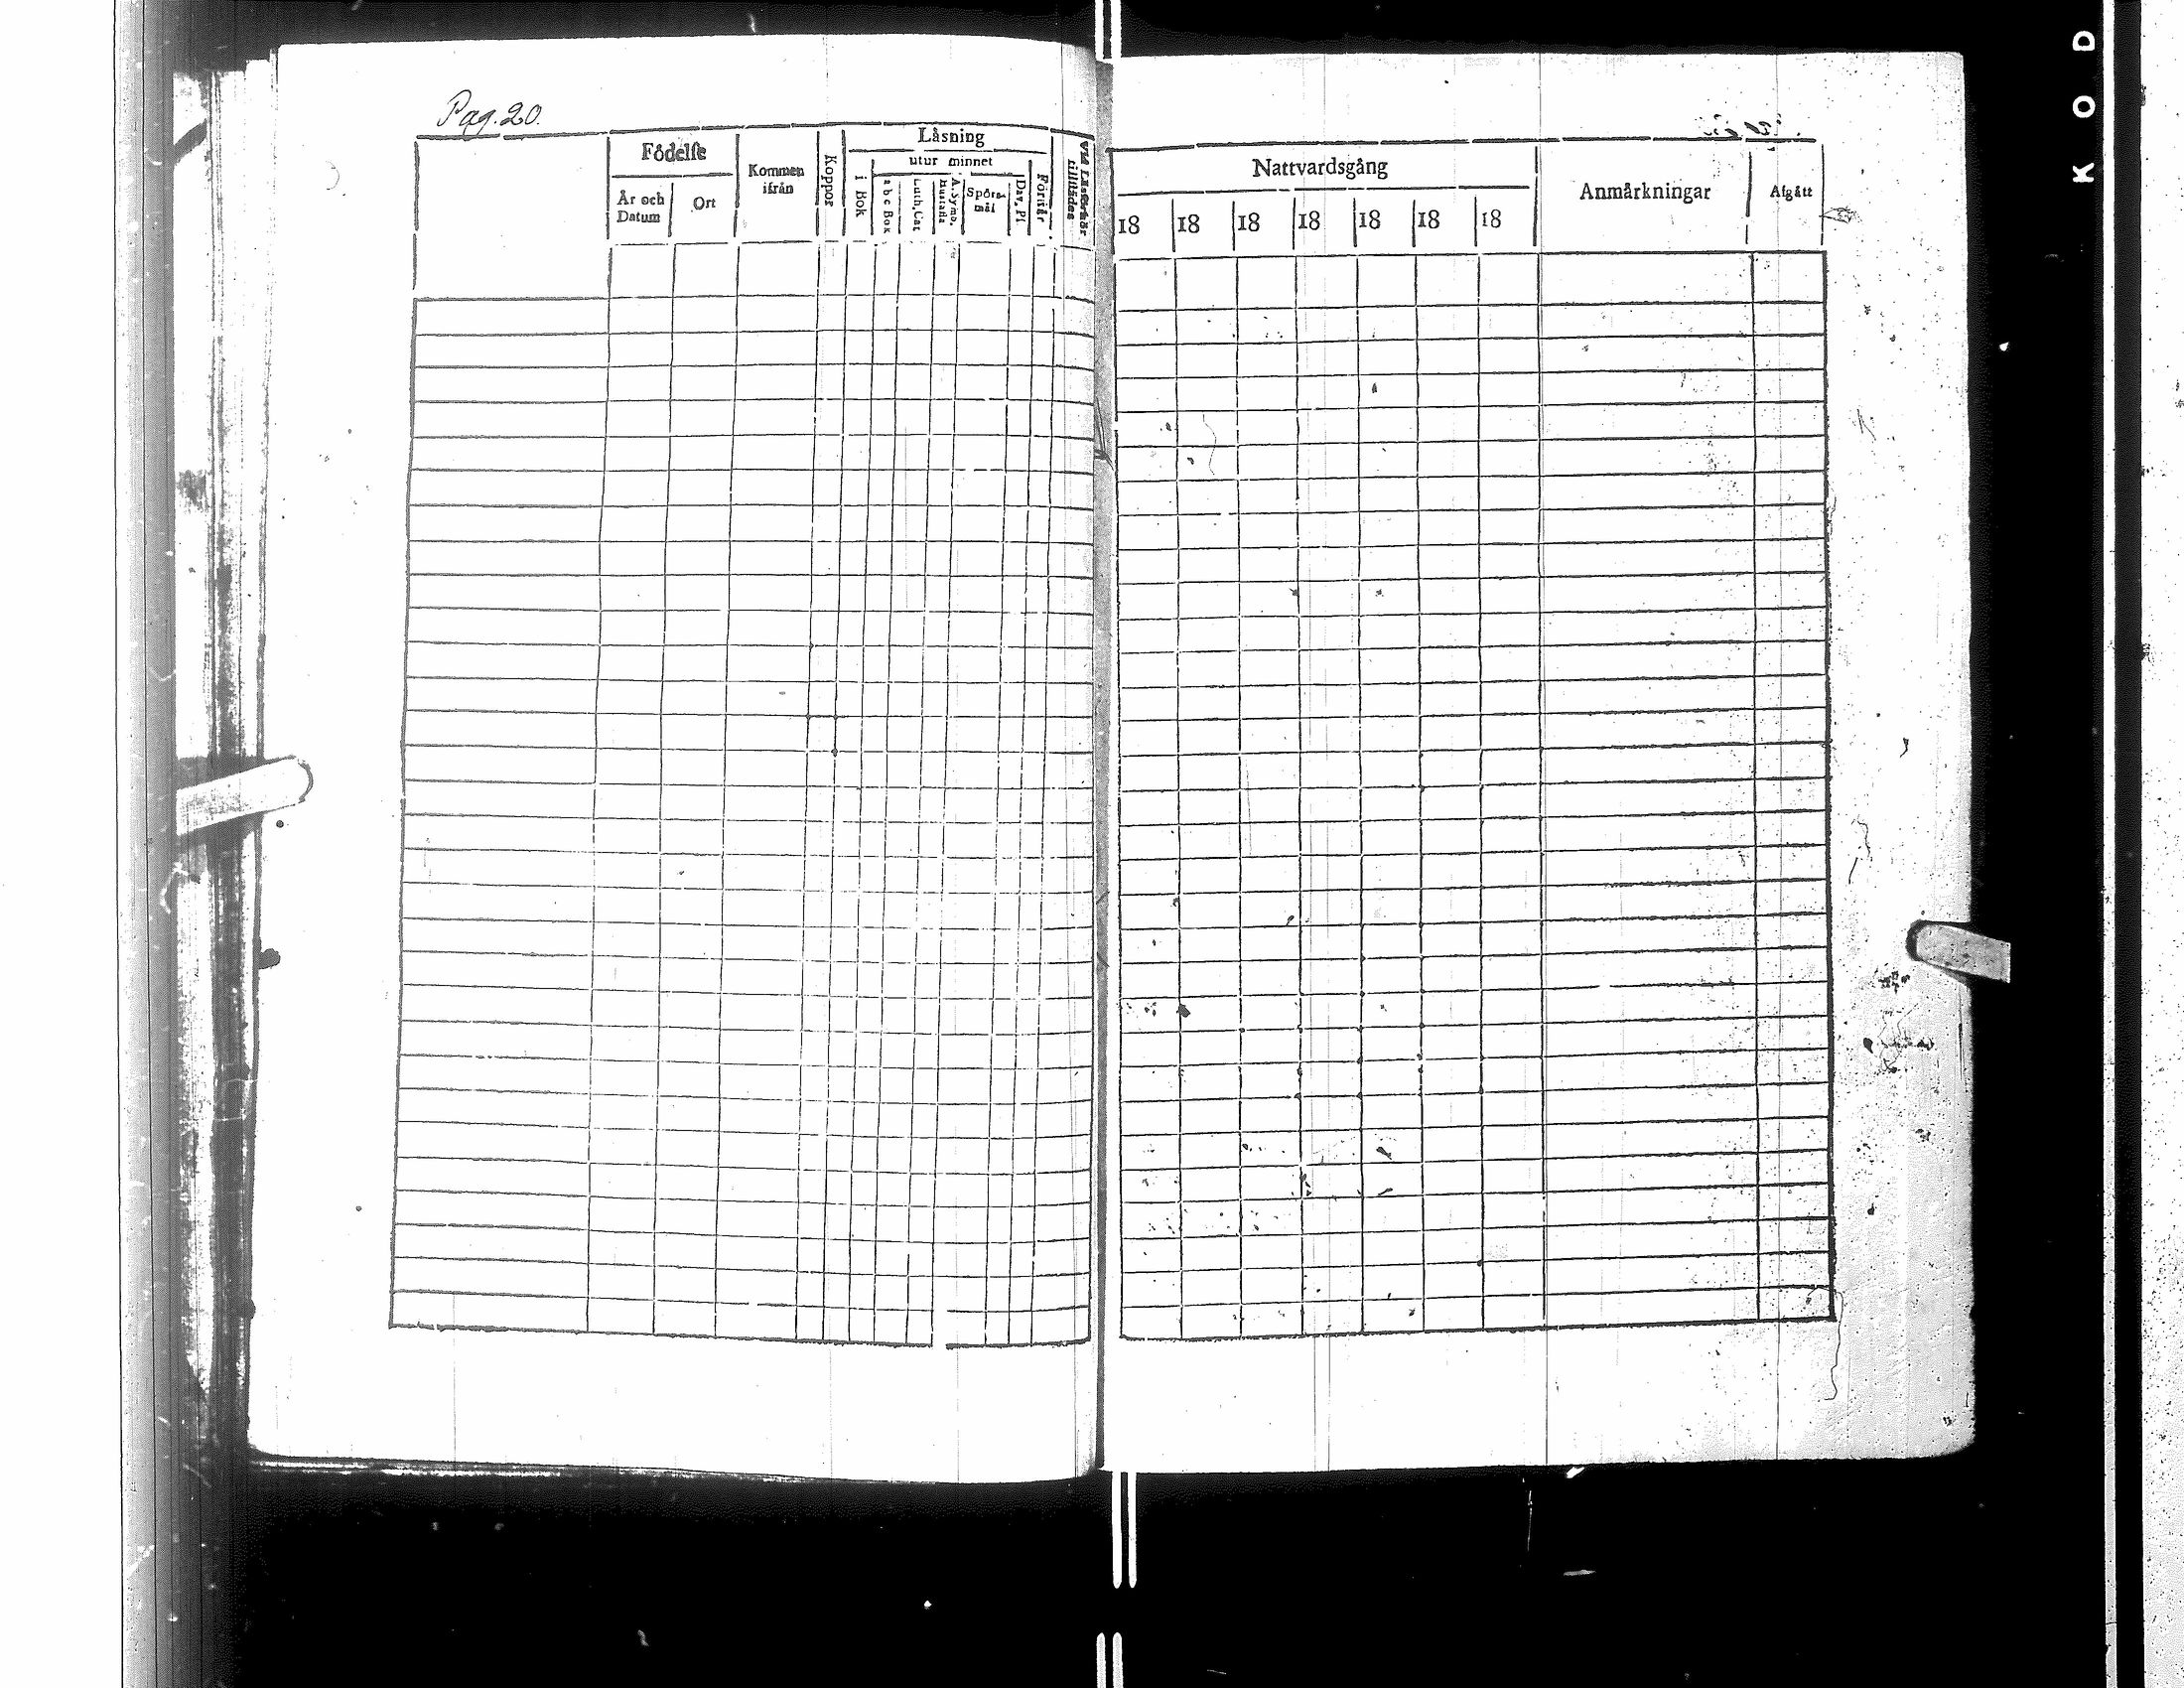 Pag. 20.
Födelse
År och Datum
Ort
Kommen ifrån
Koppor
Läsning
i Bok
utur minnet
a b c Bok
Luth. Cat
A. Symb. Hustafla
Spörsmål
Dav. Ps
Förstår
Vid Läsförhör tillstädes
Nattvardsgång
18 18 18 18 18 18 18
Anmärkningar
Afgått
KOD